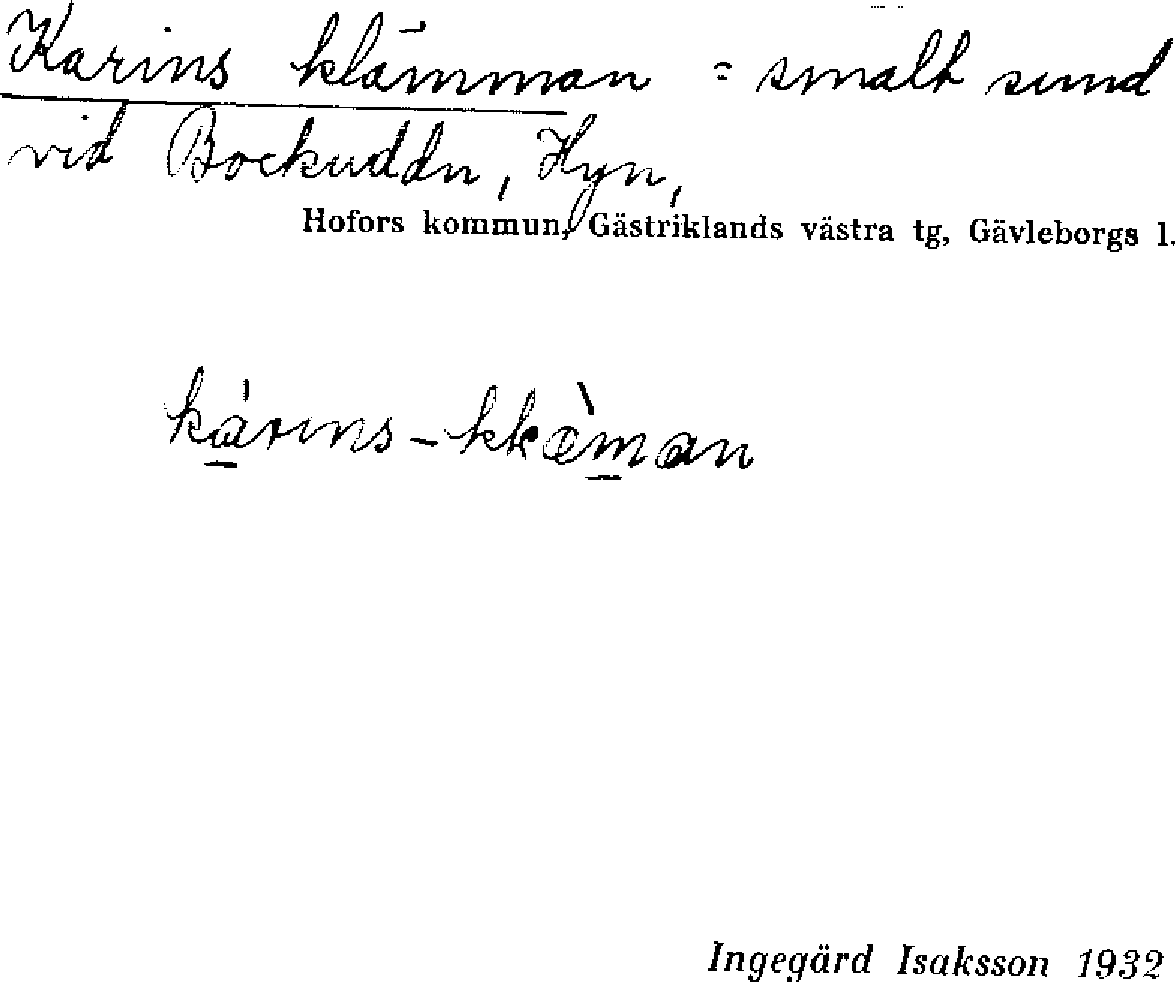 Karins klämman = smalt sund
vid Bockuddn, Hyn,
Hofors kommun, Gästriklands västra tg, Gävleborgs l.
kárins-kkæ̀man
Ingegärd Isaksson 1932